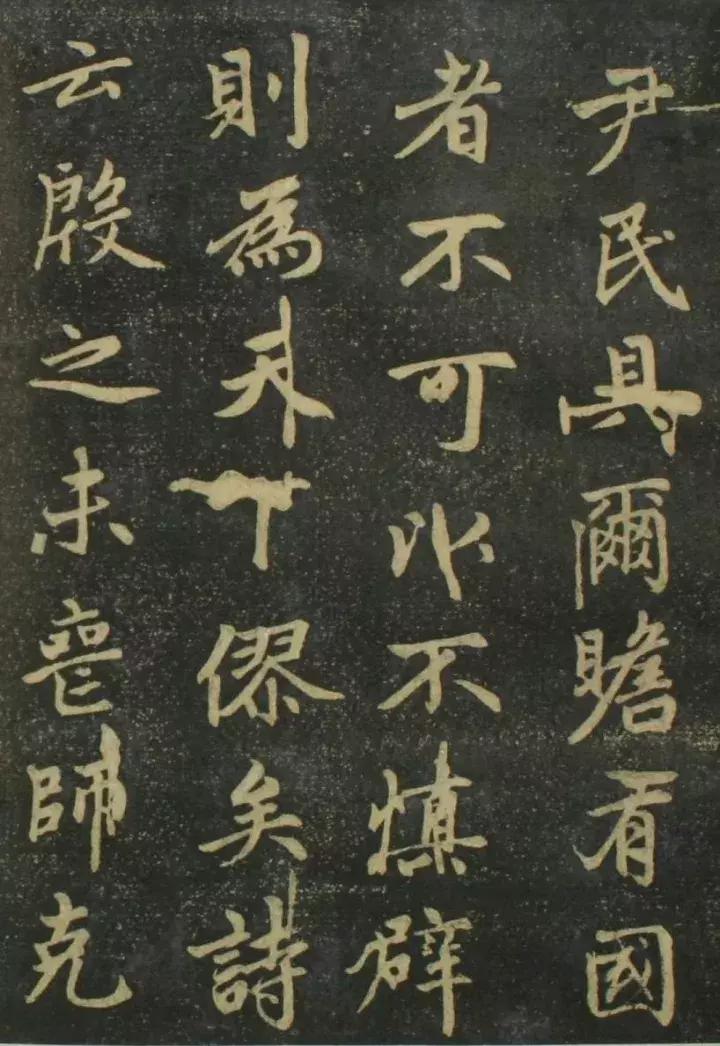 尹民具爾瞻有國
者不可以不慎辟
則為天下僇矣詩
云殷之未喪師克